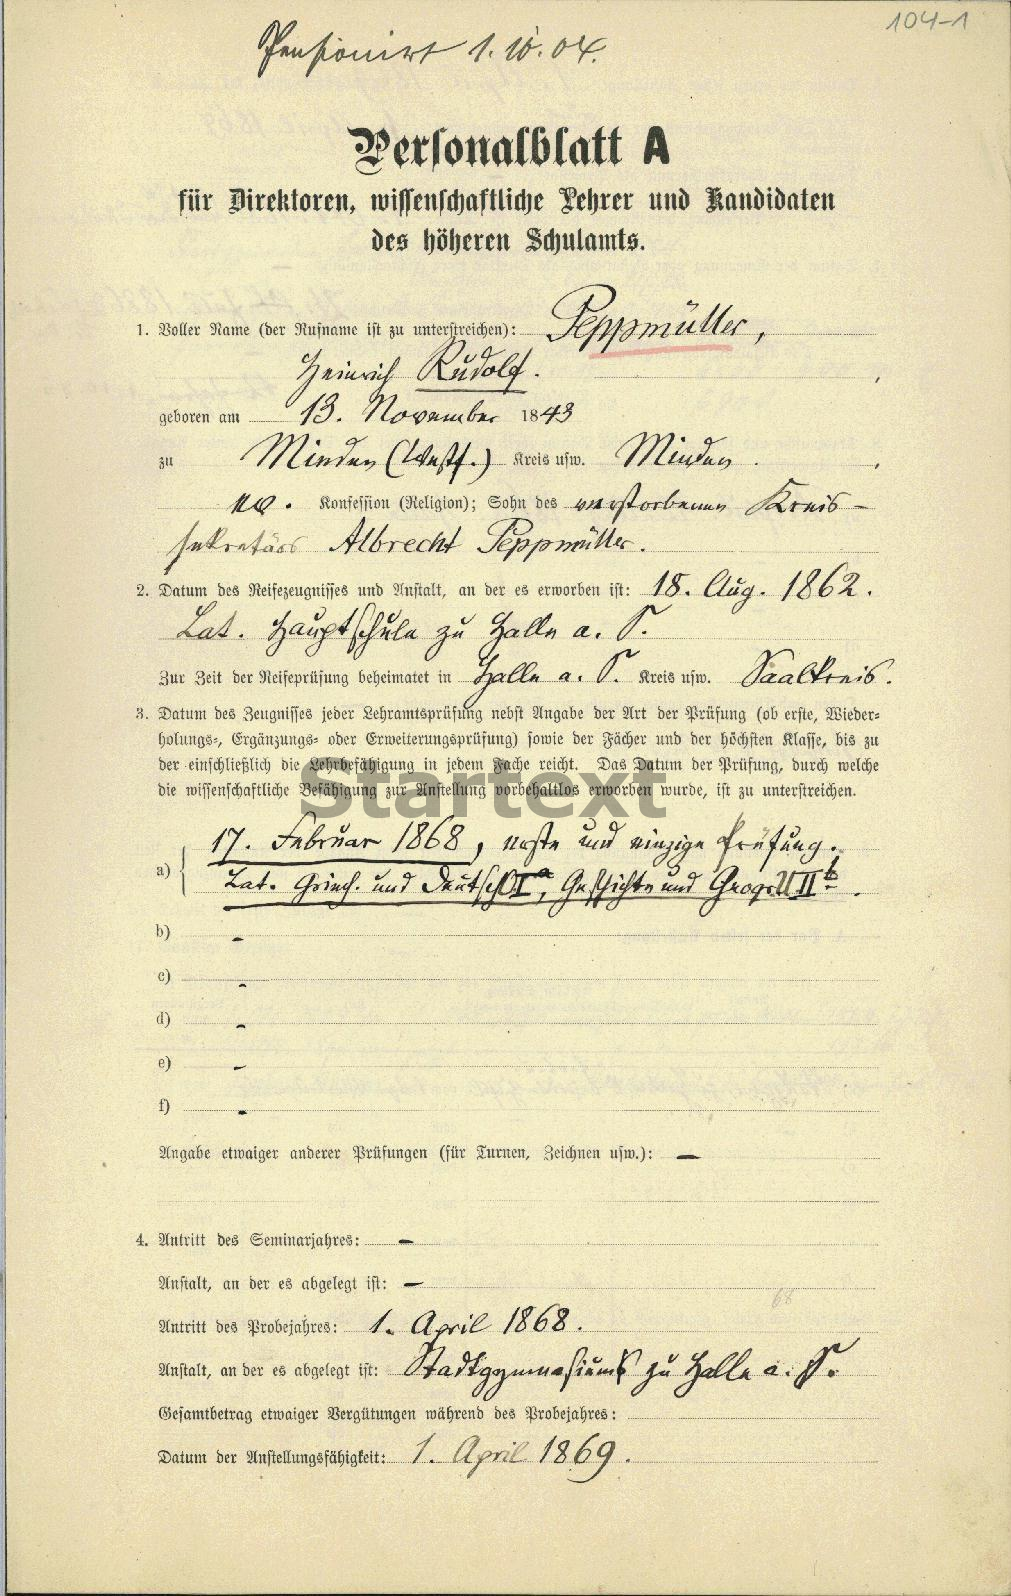 104-1
Pensionirt 1.10.04.
Personalblatt A
für Direktoren, wissenschaftliche Lehrer und Kandidaten
des höheren Schulamts.
1. Voller Name (der Rufname ist zu unterstreichen): Peppmüller,
Heinrich Rudolf.
geboren am 13. November 1843
zu Minden (Westf.) Kreis usw. Minden.
ev. Konfession (Religion); Sohn des verstorbenen Kreis-
sekretärs Albrecht Peppmüller.
2. Datum des Reifezeugnisses und Anstalt, an der es erworben ist: 18. Aug. 1862.
Lat. Hauptschule zu Halle a. S.
Zur Zeit der Reifeprüfung beheimatet in Halle a. S. Kreis usw. Saalkreis.
3. Datum des Zeugnisses jeder Lehramtsprüfung nebst Angabe der Art der Prüfung (ob erste, Wieder-
holungs-, Ergänzungs- oder Erweiterungsprüfung) sowie der Fächer und der höchsten Klasse, bis zu
der einschließlich die Lehrbefähigung in jedem Fache reicht. Das Datum der Prüfung, durch welche
die wissenschaftliche Befähigung zur Anstellung vorbehaltlos erworben wurde, ist zu unterstreichen.
Startext
17. Februar 1868, erste und einzige Prüfung.
a) Lat. Griech. und Deutsch I a, Geschichte und Geogr. U II b.
b) -
c) -
d) -
e) -
f) -
Angabe etwaiger anderer Prüfungen (für Turnen, Zeichnen usw.): -
4. Antritt des Seminarjahres: -
Anstalt, an der es abgelegt ist: -
68
Antritt des Probejahres: 1. April 1868.
Anstalt, an der es abgelegt ist: Stadtgymnasium zu Halle a. S.
Gesamtbetrag etwaiger Vergütungen während des Probejahres:
Datum der Anstellungsfähigkeit: 1. April 1869.